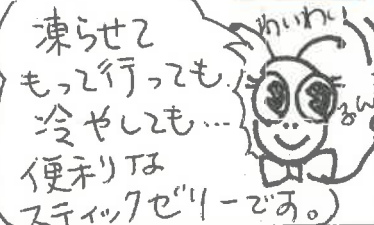 凍らせて
もって行っても
冷やしても…
便利な
スティックゼリーです。
わいわい
るん